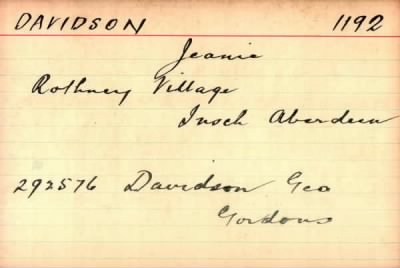 DAVIDSON 1192
Jeanie
Rothney Village
Insch Aberdeen
292576 Davidson Geo
Gordons